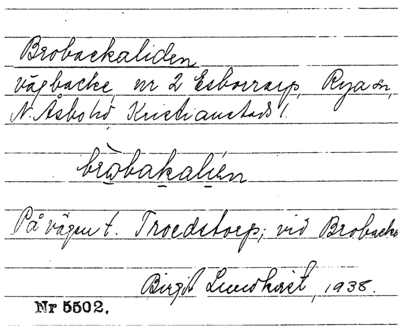 Brobackaliden
vägbacke, nr 2 Esborrarp, Rya sn,
N. Åsbo hd, Kristianstads l.
bròbakalíen
På vägen t. Troedstorp; vid Brobacke
Birgit Lundkvist, 1938.
Nr 5502.